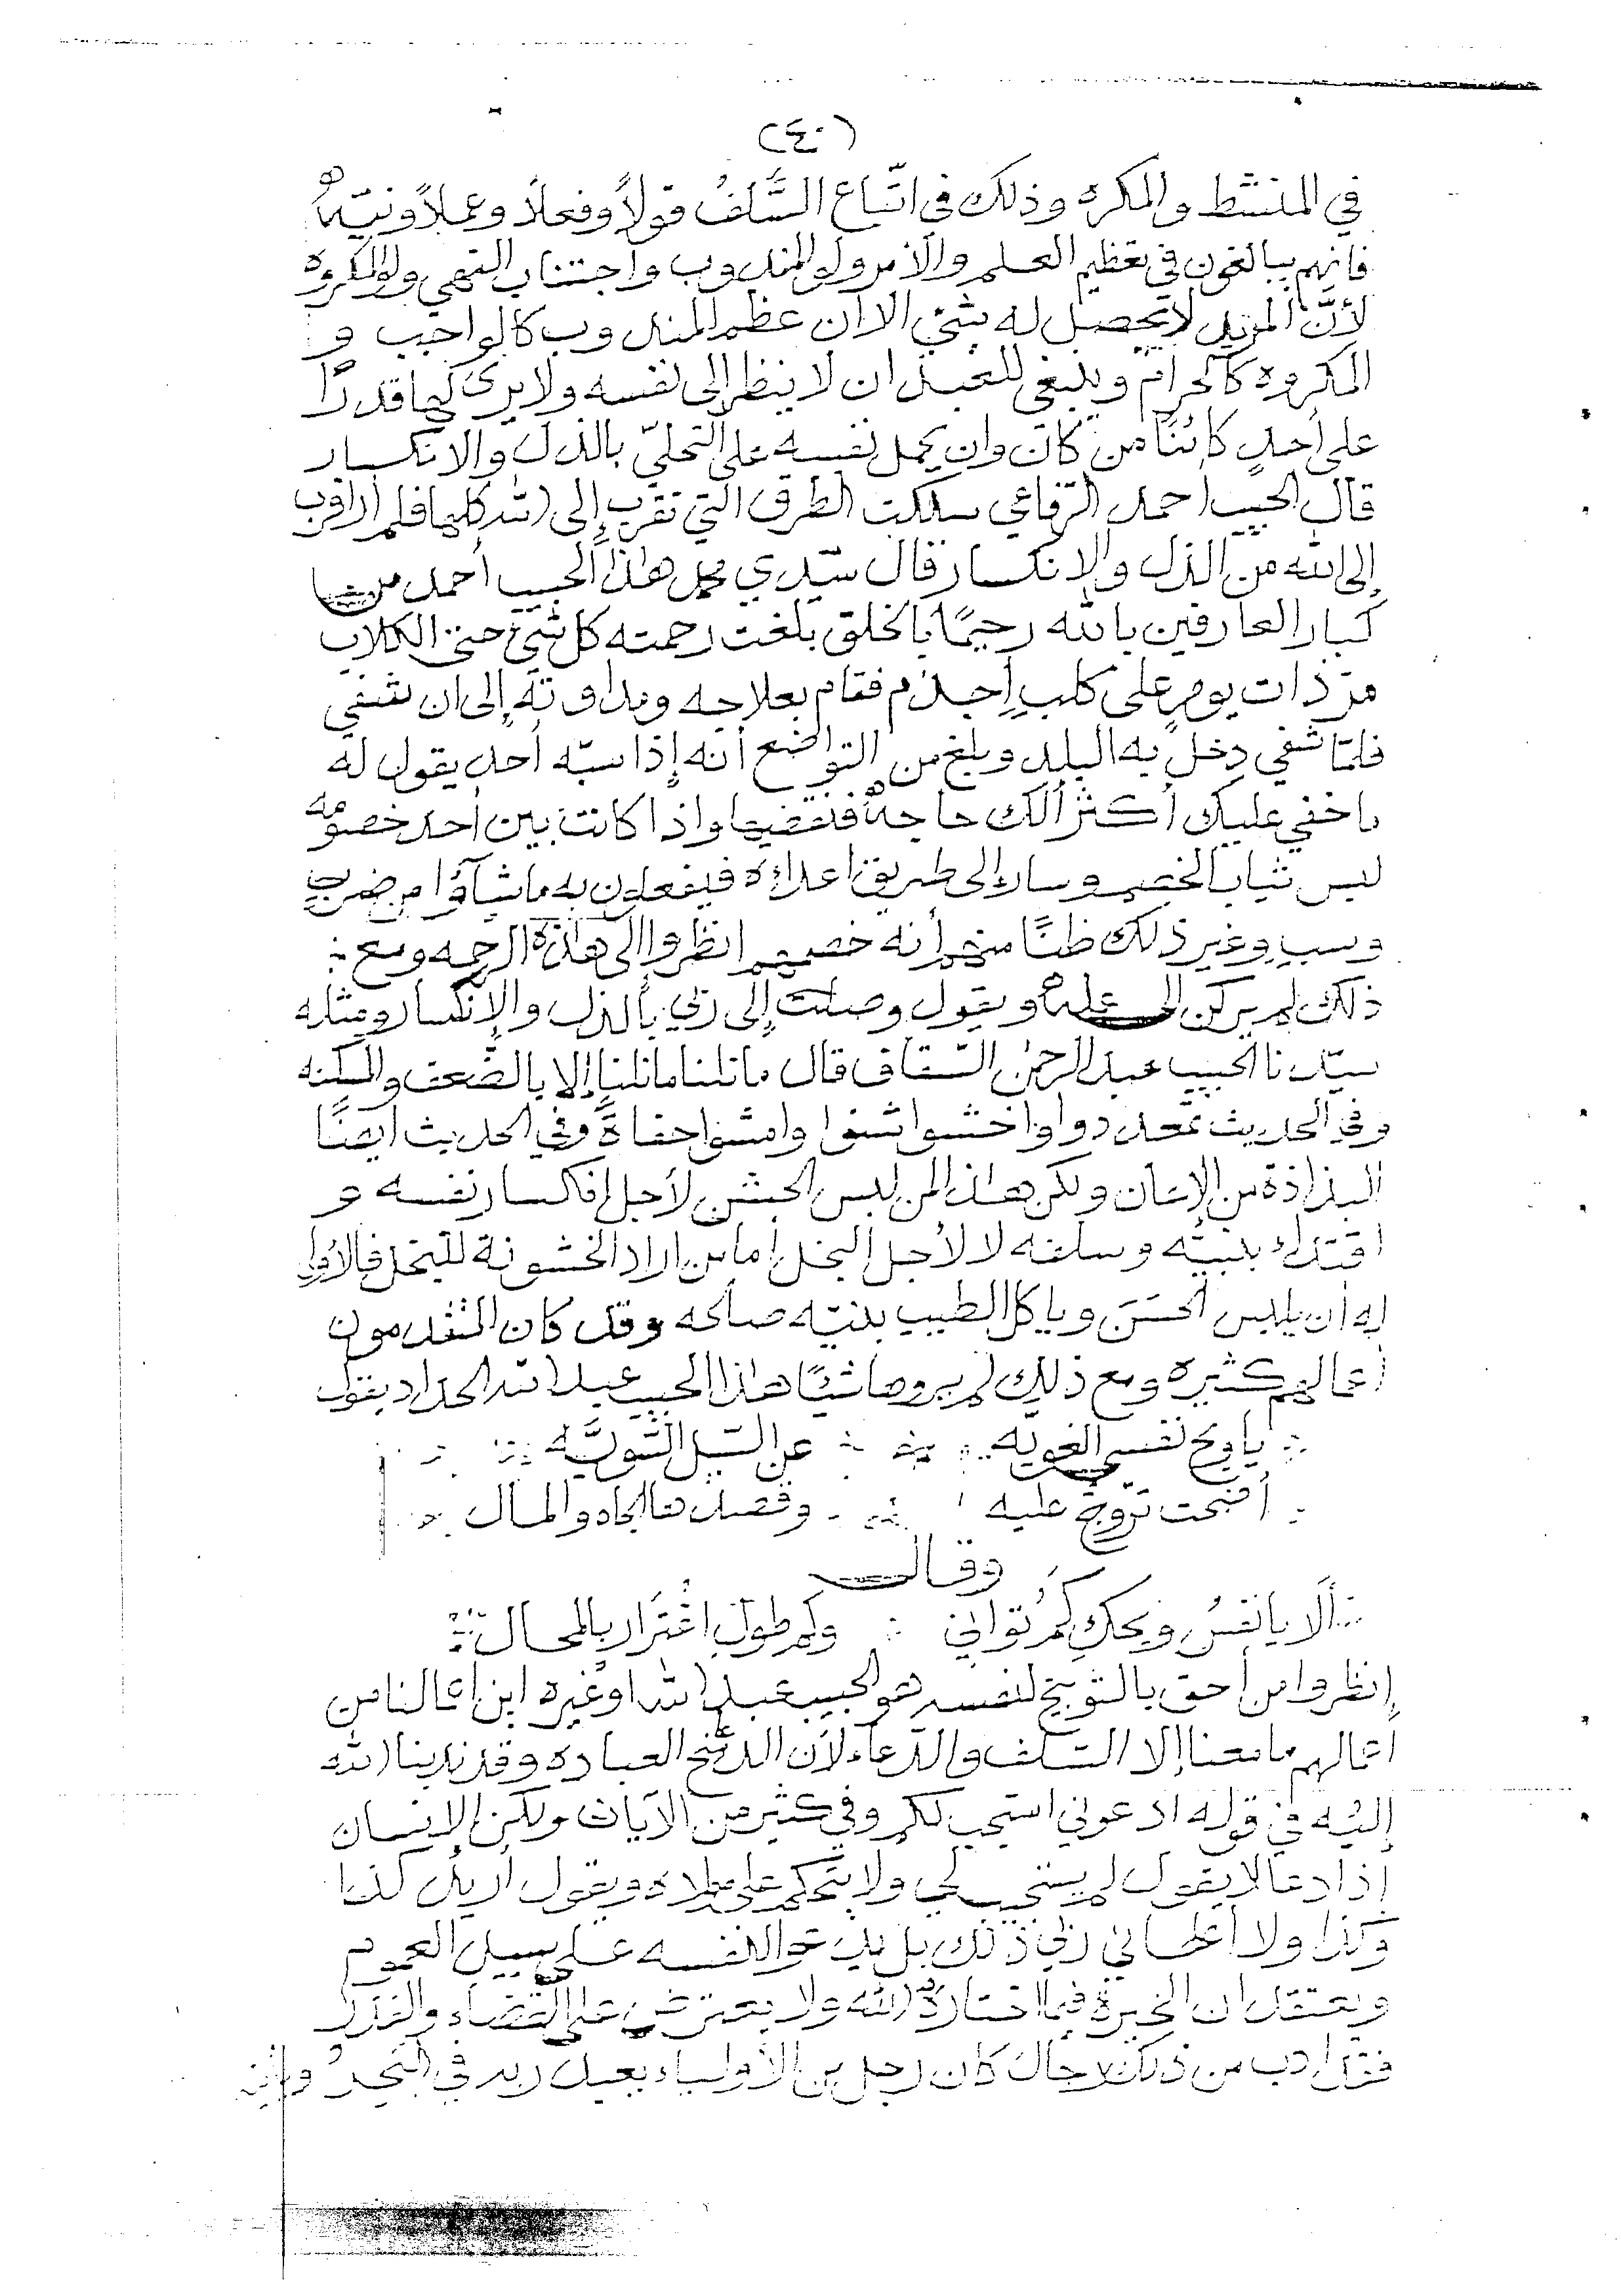 (٤٠)
في المنشط والمكره وذلك في اتّباع السَّلفُ قولاً وفعلاً وعملاً ونيّةً
فانهم يبالغون في تعظيم العلم والأمر ولو المندوب واجتناب النهي ولو المكروه
لأنَّ المريد لا يحصل له شيّ الا ان عظم المندوب كالواجب و
المكروه كالحرام وينبغي للعبد ان لا ينظر إلى نفسه ولا يرى لها قدرًا
على أحدٍ كائنًا من كان وان يحمل نفسه على التحلّي بالذل والانكسار
قال الحبيب احمد الرّفاعي سلكت الطرق التي تقرب إلى الله كلها فلم أر اقرب
إلى الله من الذل والانكسار قال سيّدي محمد هاذا الحبيب أحمد من
كبار العارفين بالله رحيمًا بالخلق بلغت رحمته كل شيّ حتى الكلاب
مرّ ذات يومٍ على كلبٍ اجذم فقام بعلاجه ومداوته إلى ان شفي
فلمّا شفي دخل به البلد وبلغ من التواضع أنه إذا سبّه أحد يقول له
ما خفي عليك أكثر ألك حاجةٌ فنقضيها واذا كانت بين أحد خصومه
لبس ثياب الخصم وسار إلى طريق اعدائه فيفعلون به ما شآؤا من ضربٍ
وسبٍ وغير ذلك ظنًا منهم أنه خصمهم انظروا إلى هاذه الرحمه ومع
ذلك لم يركن إلى علمه ويقول وصلت إلى ربّي بالذل والإنكسار ومثله
سيّدنا الحبيب عبد الرحمن السّقاف قال ما نلنا ما نلنا إلا بالضّعف والمسكنه
وفي الحديث تمعددوا واخشوشنوا وامشوا حفاةً وفي الحديث أيضًا
البذاذة من الإيمان ولكن هاذا لمن لبس الخشن لأجل إنكسار نفسه و
اقتداء بنبيّه وسلفه لا لأجل البخل أما من اراد الخشونة للبخل فالأولى
له ان يلبس الحَسَن ويأكل الطيب بنيّه صالحه وقد كان المتقدمون
أعمالهم كثيره ومع ذلك لم يروها شيئًا هاذا الحبيب عبد الله الحداد يقول
ياويح نفسي الغويّه عن السّبيل السّويَّه
أضحت تروّج عليه وقصدها الجاه والمال
وقال
ألا يا نفسُ ويحكِ كم تواني وكم طول اغترار بالمحال
إنظروا من أحق بالتوبيخ لنفسه هو الحبيب عبد الله اوغيره اين اعمالنا من
اعمالهم ما معنا إلا السّلف والدّعاء لأن الدعاء مخ العباده وقد ندبنا الله
إليه في قوله ادعوني استجب لكم وفي كثير من الآيات ولكن الإنسان
إذا دعا لا يقول لم يستجب لي ولا يتحكم على مولاه ويقول أريد كذا
وكذا ولا أعطاني ربّي ذلك بل يدعو لنفسه على سبيل العموم
ويعتقد ان الخيرة فيما اختاره الله ولا يعترض على القضاء والقدر
رجال كان رجل من الأولياء يعبد ربه في البحر